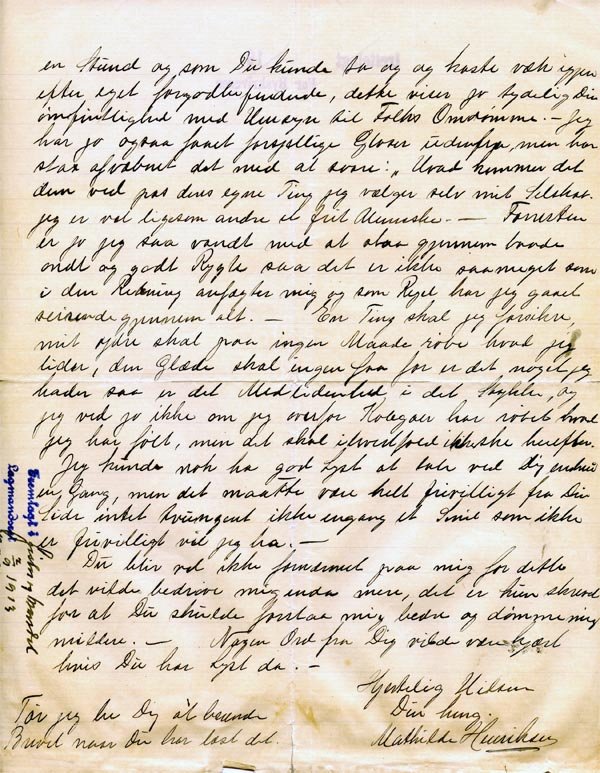 en Stund og som Du kunde ta og og kaste væk igjen
efter eget forgodtbefindende, dette viser jo tydelig Din
ömfintlighed med Hensyn til Folks Omdömme. — Jeg
har jo ogsaa faaet forskjellige Gloser udenfra, men har
strax afvæbnet det med at svare: „Hvad kommer det
dem ved pas deres egne Ting jeg vælger selv mit Selskab.
jeg er vel ligesom andre et frit Menneske. — Forresten
er jo jeg saa vandt med at staa gjennem baade
ondt og godt Rygte saa det er ikke saameget som
i den Retning anfægter mig og som Regel har jeg gaaet
seirende gjennem alt. — En Ting skal jeg forsikre,
mit ydre skal paa ingen Maade robe hvad jeg
lider, den Glæde skal ingen faa for er det noget jeg
hader saa er det Medlidenhed i det Stykke, og
jeg ved jo ikke om jeg overfor Kolegaer har robet hvad
jeg har fölt, men det skal ialdfald ikke ske herefter.
Jeg kunde nok ha god Lyst at tale ved Dig endnu
en Gang, men det maatte være helt frivilligt fra Din
Side intet tvungent ikke engang et Smil som ikke
er frivilligt vil jeg ha. —
Du blir vel ikke fornærmet paa mig for dette
det vilde bedröve mig enda mere, det er kun skrevet
for at Du skulde forstaa mig bedre og dömme mig
mildere. — Nogen Ord fra Dig vilde være kjært
hvis Du har Lyst da. —
Hjertelig Hilsen
Din heng.
Mathilde Henriksen
Tör jeg be Dig at brænde
Brevet naar Du har læst det.
Fremlagt i
Lagmandsret
2/9 1913